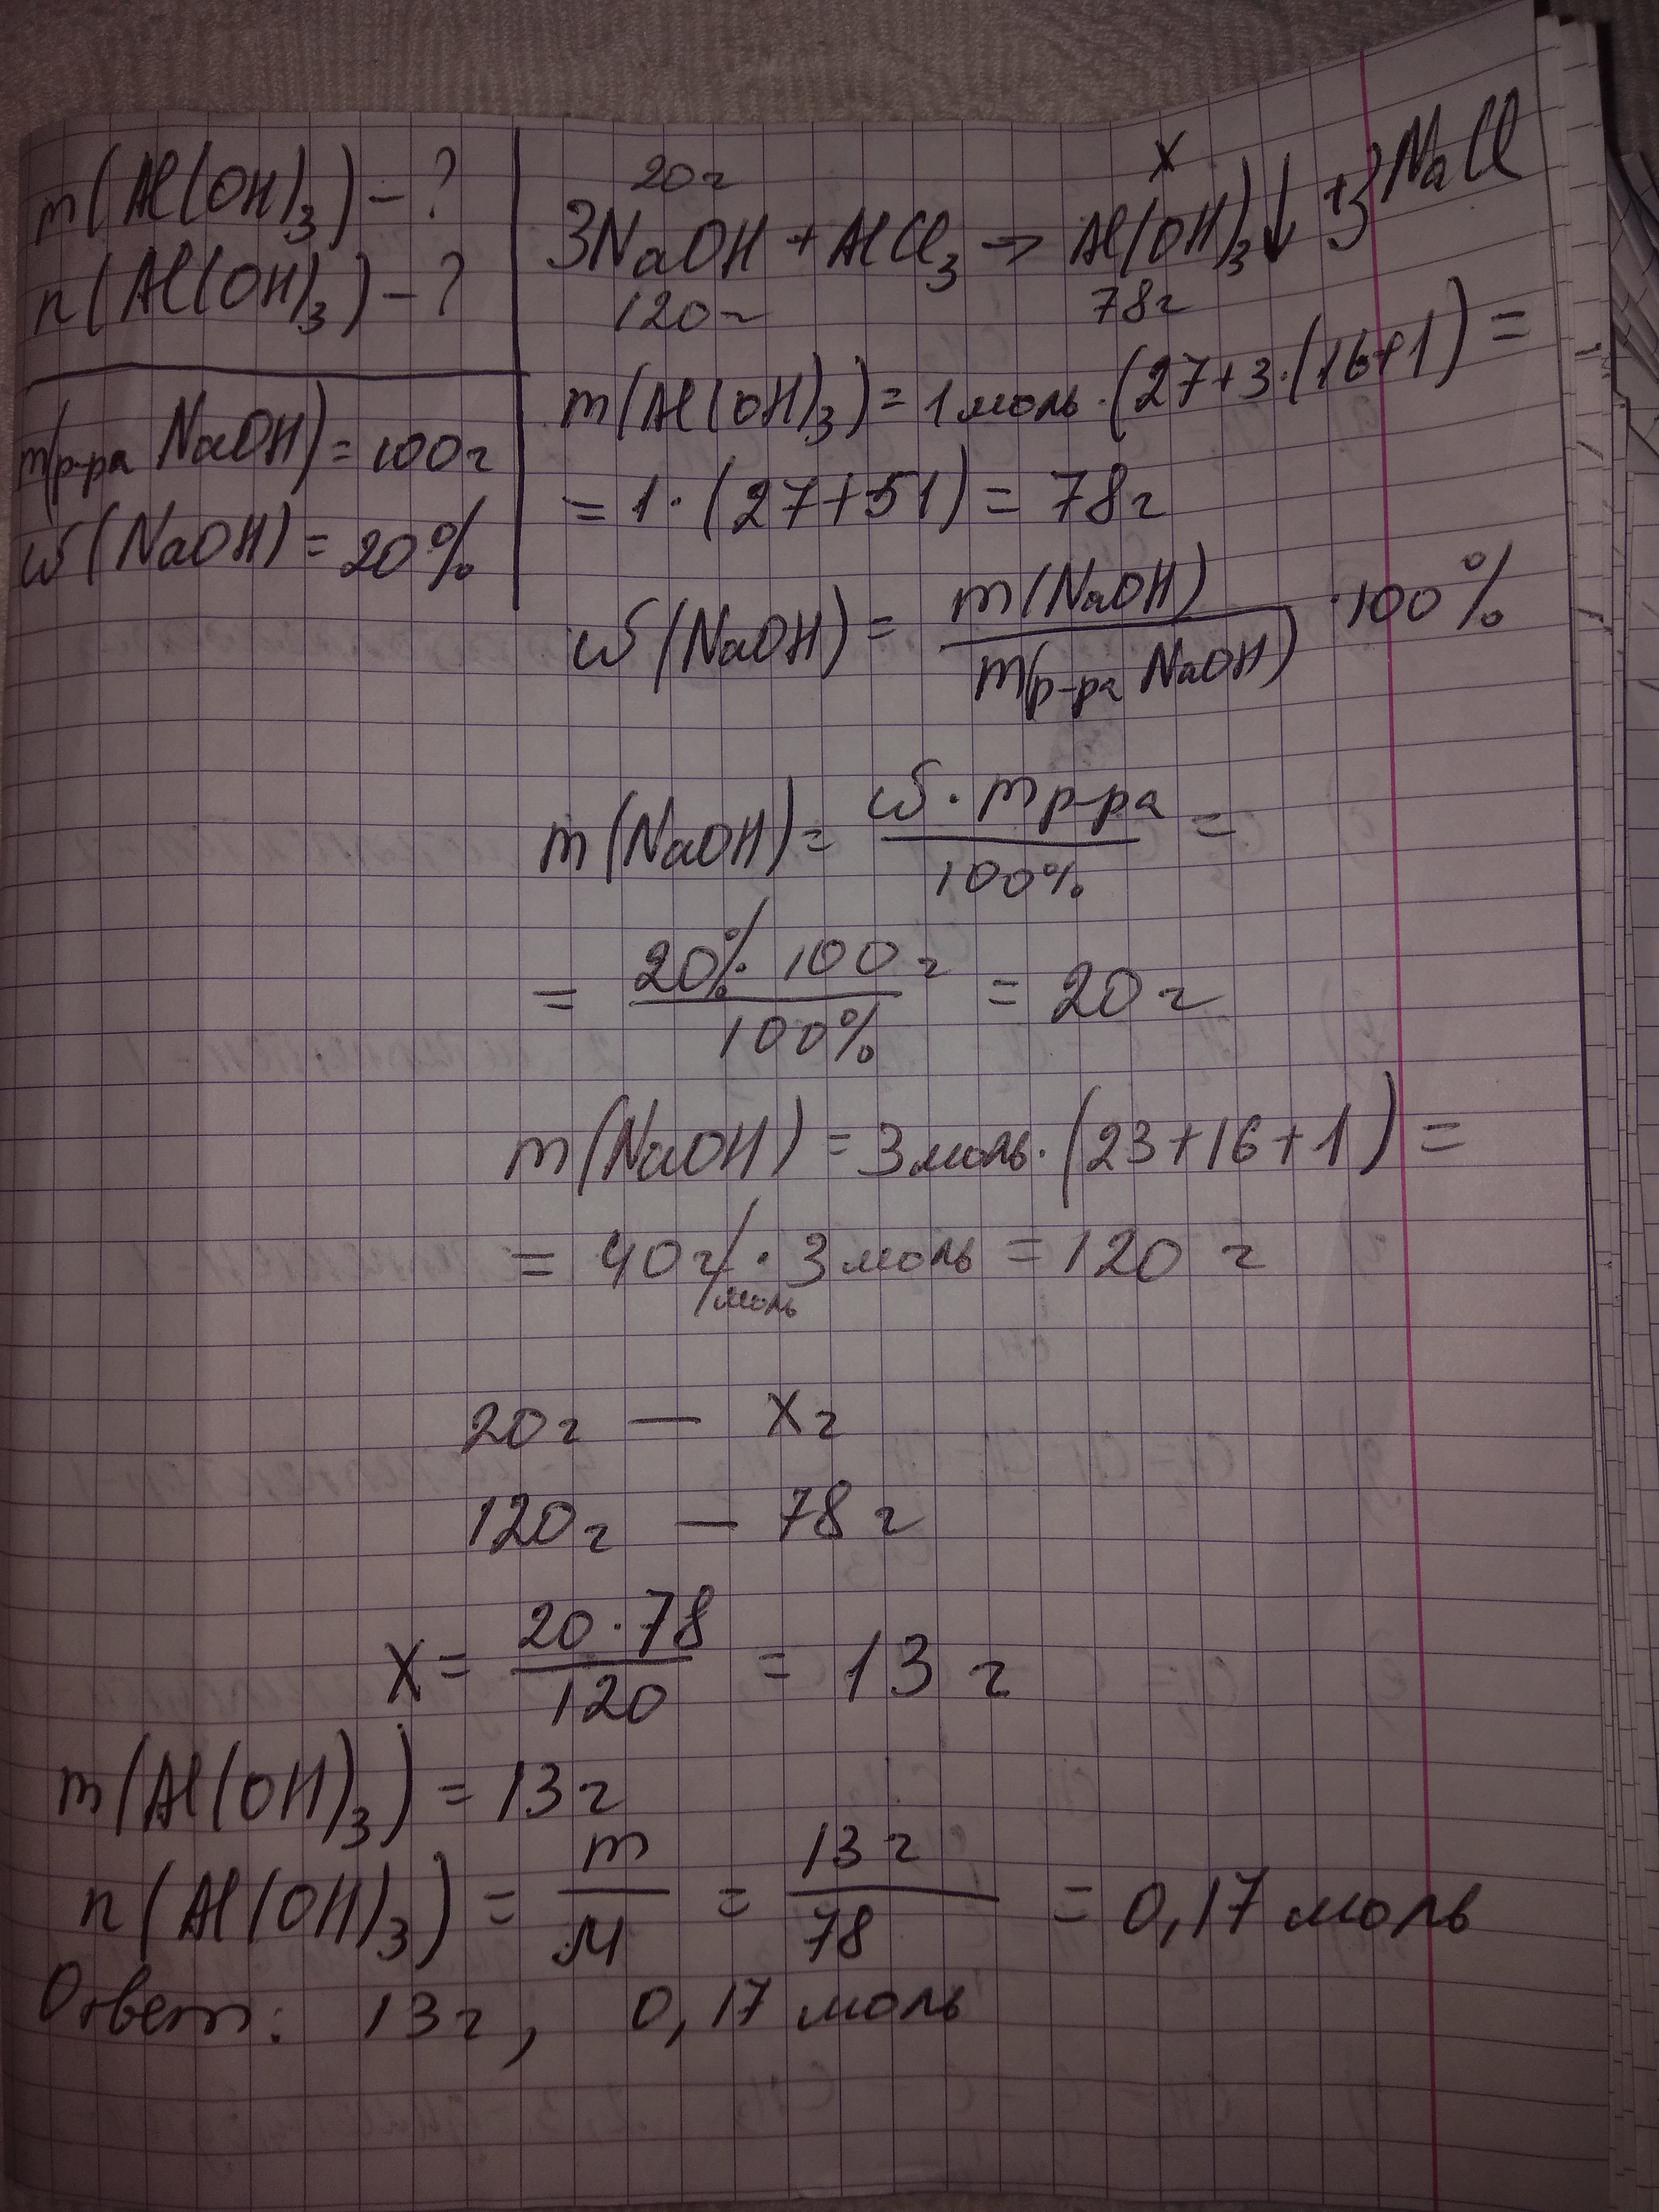 m(Al(OH)₃) – ?
n(Al(OH)₃) – ?
m(р-ра NaOH) = 100г
ω(NaOH) = 20%
20г x
3NaOH + AlCl₃ → Al(OH)₃↓ + 3NaCl
120г 78г
m(Al(OH)₃) = 1 моль · (27+3·(16+1) =
= 1 · (27+51) = 78г
ω(NaOH) = m(NaOH) / m(р-ра NaOH) · 100%
m(NaOH) = ω · m р-ра / 100% =
= 20% · 100 г / 100% = 20 г
m(NaOH) = 3 моль · (23+16+1) =
= 40 г/моль · 3 моль = 120 г
20г — Xг
120г — 78г
X = 20 · 78 / 120 = 13 г
m(Al(OH)₃) = 13г
n(Al(OH)₃) = m / M = 13г / 78 = 0,17 моль
Ответ: 13г, 0,17 моль